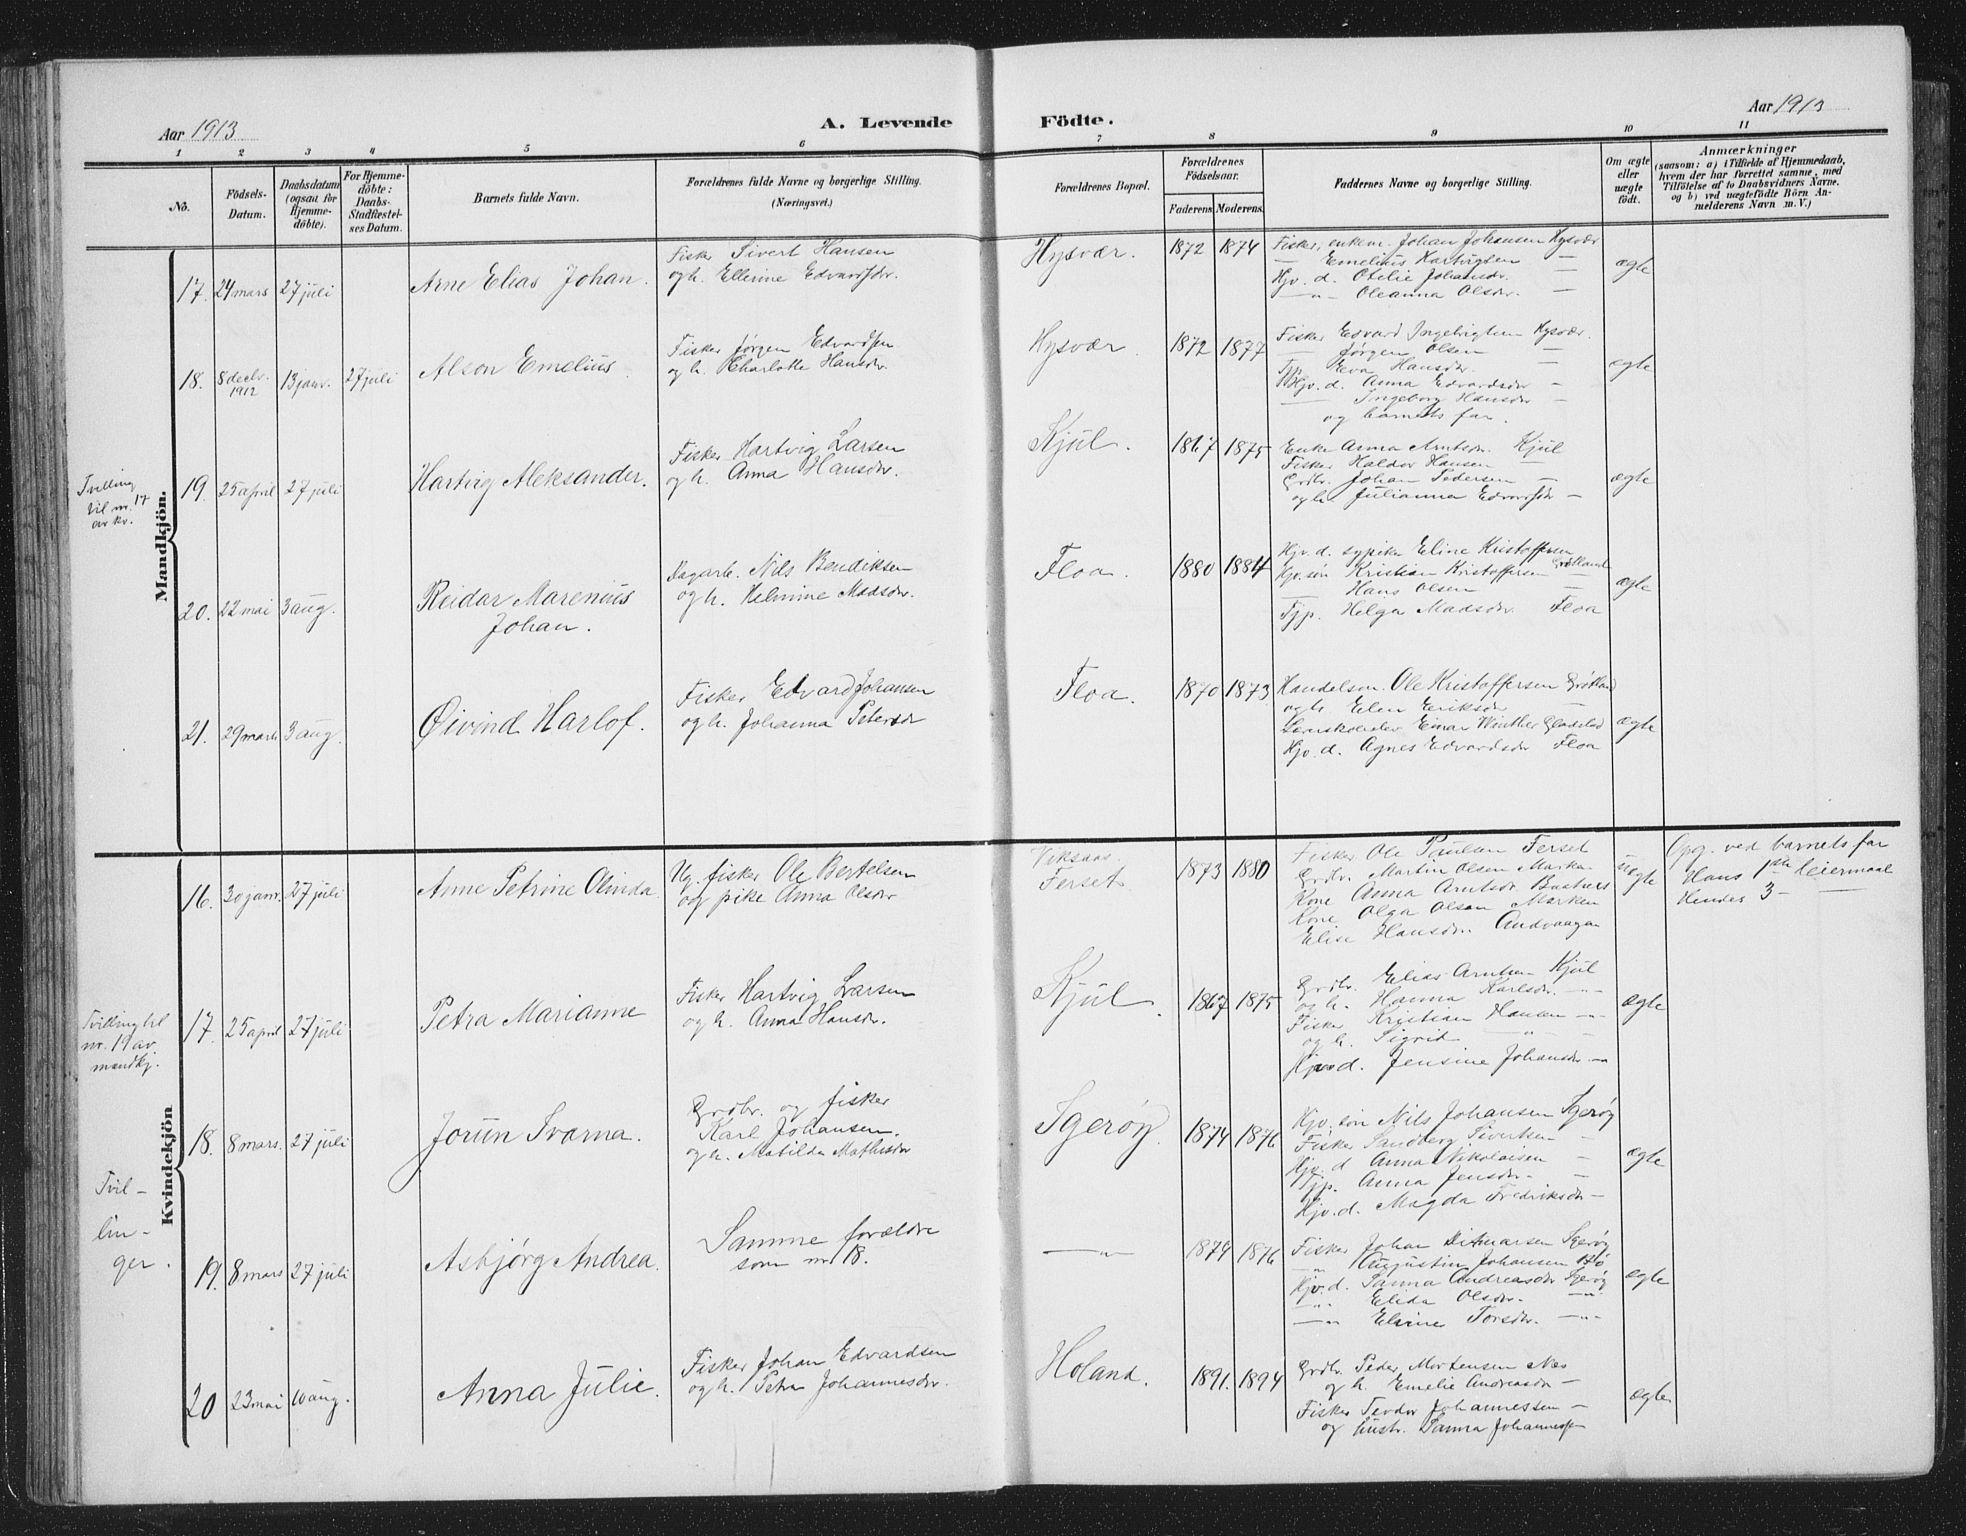 Aar 1913
A. Levende Födte.
Aar 1913
1 2 3 4 5 6 7 8 9 10 11
No.
Födsels-
Datum.
Daabsdatum
(ogsaa for
Hjemme-
döbte).
For Hjemme-
döbte:
Daabs-
Stadfæstel-
ses Datum.
Barnets fulde Navn.
Forældrenes fulde Navne og borgerlige Stilling.
(Næringsvei.)
Forældrenes Bopæl.
Forældrenes
Födselsaar.
Faderens. Moderens.
Faddernes Navne og borgerlige Stilling.
Om ægte
eller
uægte
födt.
Anmærkninger
(saasom: a) i Tilfælde af Hjemmedaab,
hvem der har forrettet samme, med
Tilföielse af to Daabsvidners Navne.
og b) ved uægtefödte Börn An-
melderens Navn m. V.)
Mandkjön.
17. 24 mars 27 juli
Arne Elias Johan.
Fisker Sivert Hansen
og h. Ellerine Edvardsdr.
Hysvær.
1872 1874
Fisker, enkem. Johan Johansen Hysvær
— Emelius Hartvigsen —
Hjv. d. Otelie Johansdr. —
—"— Oleanna Olsdr. —
ægte
18. 8 decbr. 1912 13 janr. 27 juli
Alson Emelius.
Fisker Jørgen Edvardsen
og h. Charlotte Hansdr.
Hysvær.
1872 1877
Fisker Edvard Ingebrigtsen Hysvær.
— Jørgen Olsen —
Tjp. Eva Hansdr. —
Hjv. d. Anna Edvardsdr —
— Ingeborg Hansdr —
og barnets far.
ægte
Tvilling
til nr. 17
av kv.
19. 25 april 27 juli
Hartvig Aleksander.
Fisker Hartvig Larsen
og h. Anna Hansdr.
Kjul.
1867 1875
Enke Anna Arntsdr. Kjul
Fisker Haldor Hansen —
Grdbr. Johan Pedersen —
og h. Julianna Edvardsdr —
ægte
20. 22 mai 3 aug.
Reidar Marenius
Johan.
Dagarb. Nils Bendiksen
og h. Velmine Madsdr.
Floa.
1880 1884
Hjv. d. sypike Eline Kristoffersen
Hjv. søn Kristian Kristoffersen Grøtland
— Hans Olsen —
Tjp. Helga Madsdr. Floa
ægte
21. 29 mars 3 aug.
Øivind Harlof.
Fisker Edvard Johansen
og h. Johanna Petersdr
Floa.
1870 1873
Handelsm. Ole Kristoffersen Grøtland
og h. Elen Eriksdr —
Einar Winther Gladstad
Hjv. d. Agnes Edvardsdr Floa
ægte
Kvindekjön
16. 30 janr. 27 juli
Anne Petrine Olinda
Ug. fisker Ole Bertelsen
og pike Anna Olsdr
Viksaas.
Ferset.
1873 1880
Fisker Ole Paulsen Ferset
Grdbr. Martin Olsen Marka
Kone Anna Arntsdr
Kone Olga Olsen Marken
Elise Hansdr. Andvaagen
uægte
Opg. ved barnets far
Hans 1ste leiermaal
Hendes 3 —
Tvilling til
nr. 19 av
mandkj.
17. 25 april 27 juli
Petra Marianne
Fisker Hartvig Larsen
og h. Anna Hansdr.
Kjul.
1867 1875
Grdbr. Elias Arntsen Kjul
og h. Hanna Karlsdr. —"—
Fisker Kristian Hansen —"—
og h. Sigrid " —"—
Hjv. d. Jensine Johansdr. —"—
ægte
Tvil-
lin-
ger.
18. 8 mars. 27 juli
Jorun Svanna.
Grdbr. og fisker
Karl Johansen.
og h. Matilda Mathisdr
Sgerøy.
1874 1876
Hjv. søn Nils Johansen Sgerøy
Fisker Sandberg Sivertsen —
Hjv. d Anna Nikolaisen —
Tjp. Anna Jensdr. —
Hjv. d. Magda Fredriksdr —
ægte
19. 8 mars 27 juli
Asbjørg Andrea.
Samme forældre
som nr 18.
—"—
1874 1876
Fisker Johan Ditmarsen Sgerøy
" Augustin Johansen
Hjv. d. Sanna Andreasdr Sgerøy
—"— Elida Olsdr. —"—
—"— Eline Torsdr. —"—
ægte
20 23 mai 10 aug.
Anna Julie.
Fisker Johan Edvardsen
og h. Petra Johannesdr.
Holand.
1891. 1894
Grdbr. Peder Mortensen Næs
og h. Emelie Andreasdr —
Fisker Teodor Johannessen —
og hustr. Sanna Johannessen
ægte